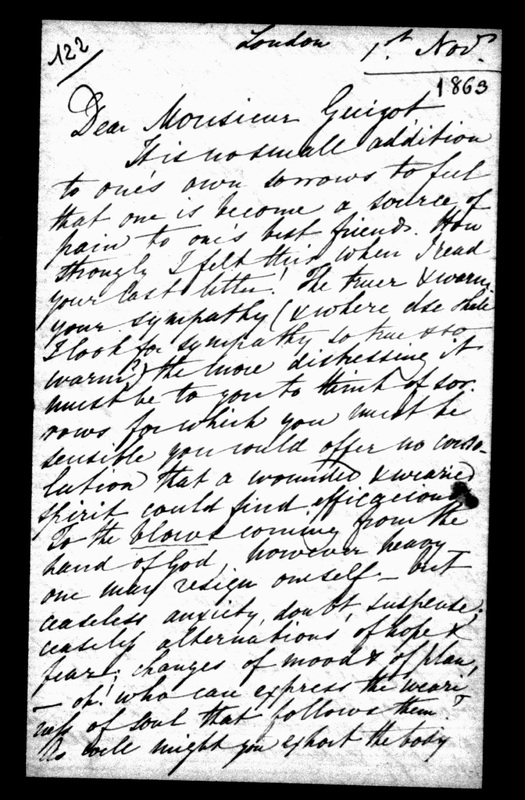 122
London 1st. Novr.
1863
Dear Monsieur Guizot
It is no small addition
to one's own sorrows to feel
that one is become a source of
pain to one's best friends. How
strongly I felt this when I read
your last letter! The truer & warmer
your sympathy (& where else shall
I look for sympathy so true & so
warm?) the more distressing it
must be to you to think of sor-
rows for which you must be
sensible you could offer no conso-
lation that a wounded & wearied
spirit could find efficacious
To the blows coming from the
hand of God, however heavy
one may resign oneself – but
ceaseless anxiety, doubt, suspense;
ceaseless alternations of hope &
fear; changes of mood & of plan,
– oh! who can express the weari-
ness of soul that follows them
As well might you exhort the body